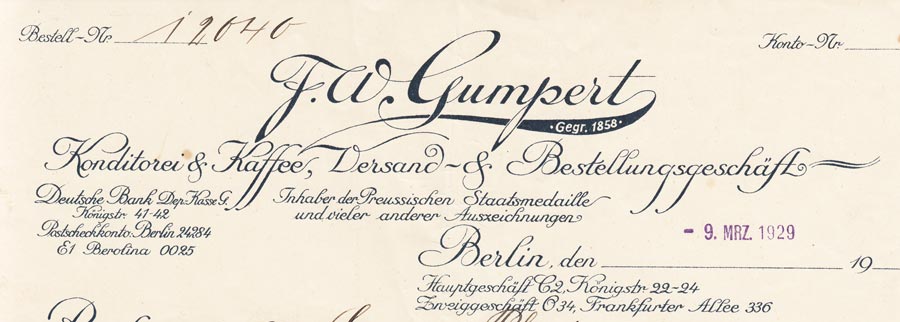 Bestell-Nr. 12040
Konto-Nr.
F. W. Gumpert
·Gegr. 1858·
Konditorei & Kaffee, Versand- & Bestellungsgeschäft
Deutsche Bank Dep. Kasse G.
Königstr. 41-42
Postscheckkonto: Berlin 24284
E1 Berolina 0025
Inhaber der Preussischen Staatsmedaille
und vieler anderer Auszeichnungen
- 9. MRZ. 1929
Berlin, den 19
Hauptgeschäft C2, Königstr. 22-24
Zweiggeschäft O34, Frankfurter Allee 336